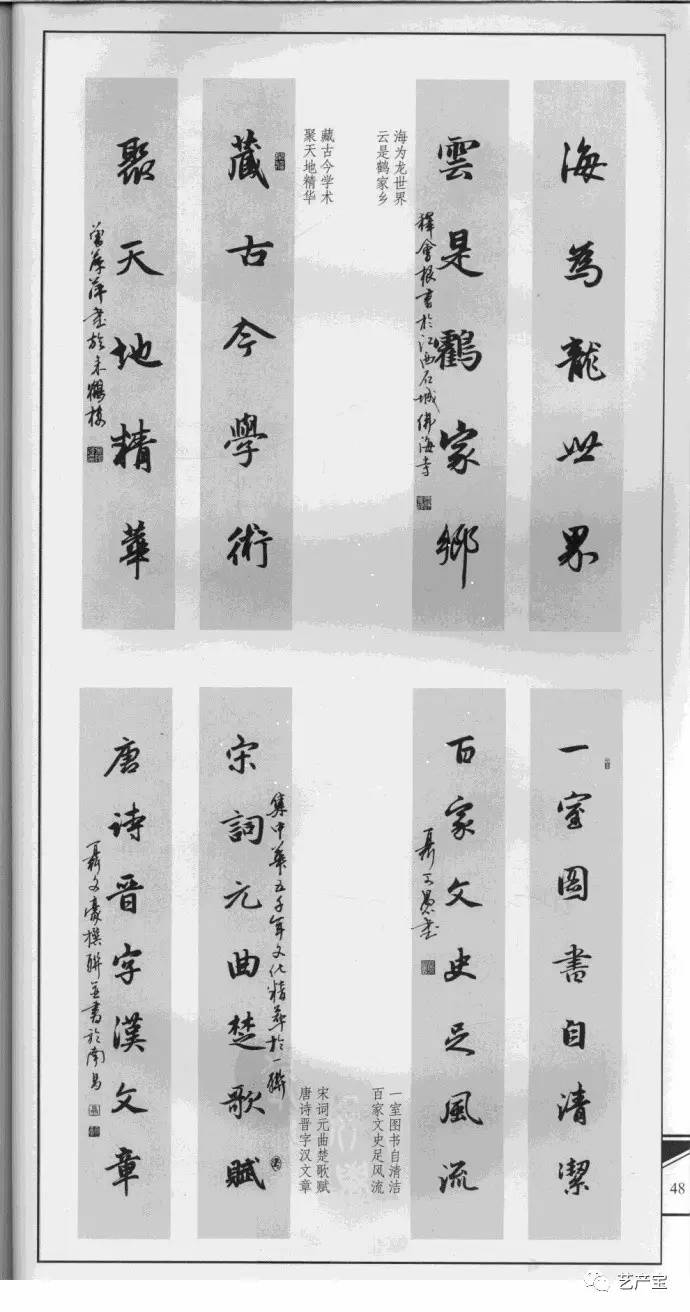 海為龍世界
雲是鸖家鄉
釋會根書於江西石城佛海寺
海为龙世界
云是鹤家乡
藏古今學術
聚天地精華
曾萍萍書於來鶴樓
藏古今学术
聚天地精华
一室图書自清潔
百家文史足風流
聶
书
一室图书自清洁
百家文史足风流
宋詞元曲楚歌賦
集中華五千年文化精華於一聯
唐诗晋字漢文章
聶文豪撰聯並書於南昌
宋词元曲楚歌赋
唐诗晋字汉文章
48
艺产宝